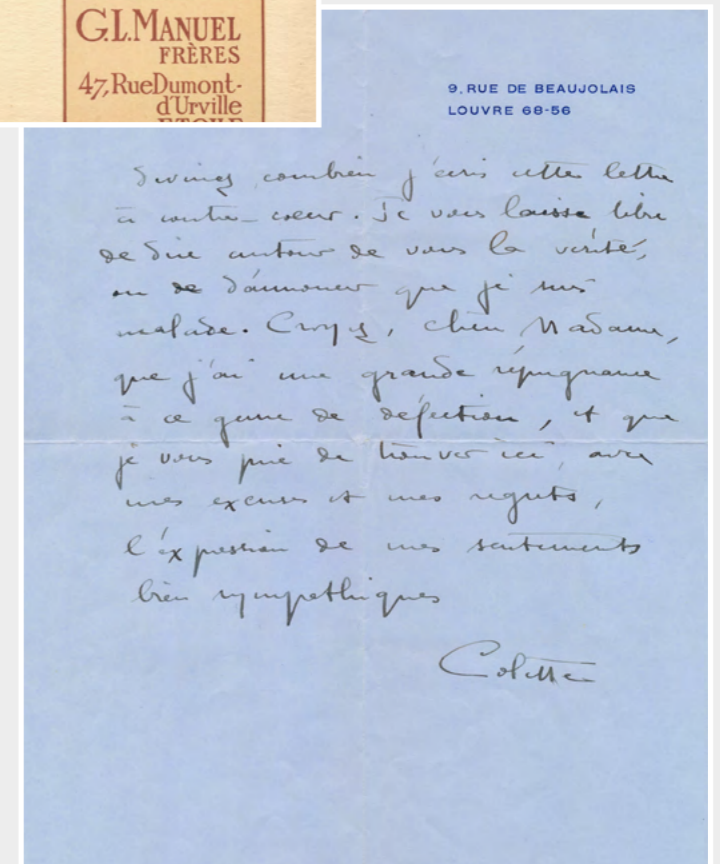 G.L. MANUEL
FRÈRES
47, Rue Dumont-
d'Urville
ETOILE
9, RUE DE BEAUJOLAIS
LOUVRE 68-56
Devinez combien j'écris cette lettre
à contre-coeur. Je vous laisse libre
de dire autour de vous la vérité,
ou de d'annoncer que je suis
malade. Croyez, chère Madame,
que j'ai une grande répugnance
à ce genre de défection, et que
je vous prie de trouver ici, avec
mes excuses et mes regrets,
l'expression de mes sentiments
bien sympathiques
Colette